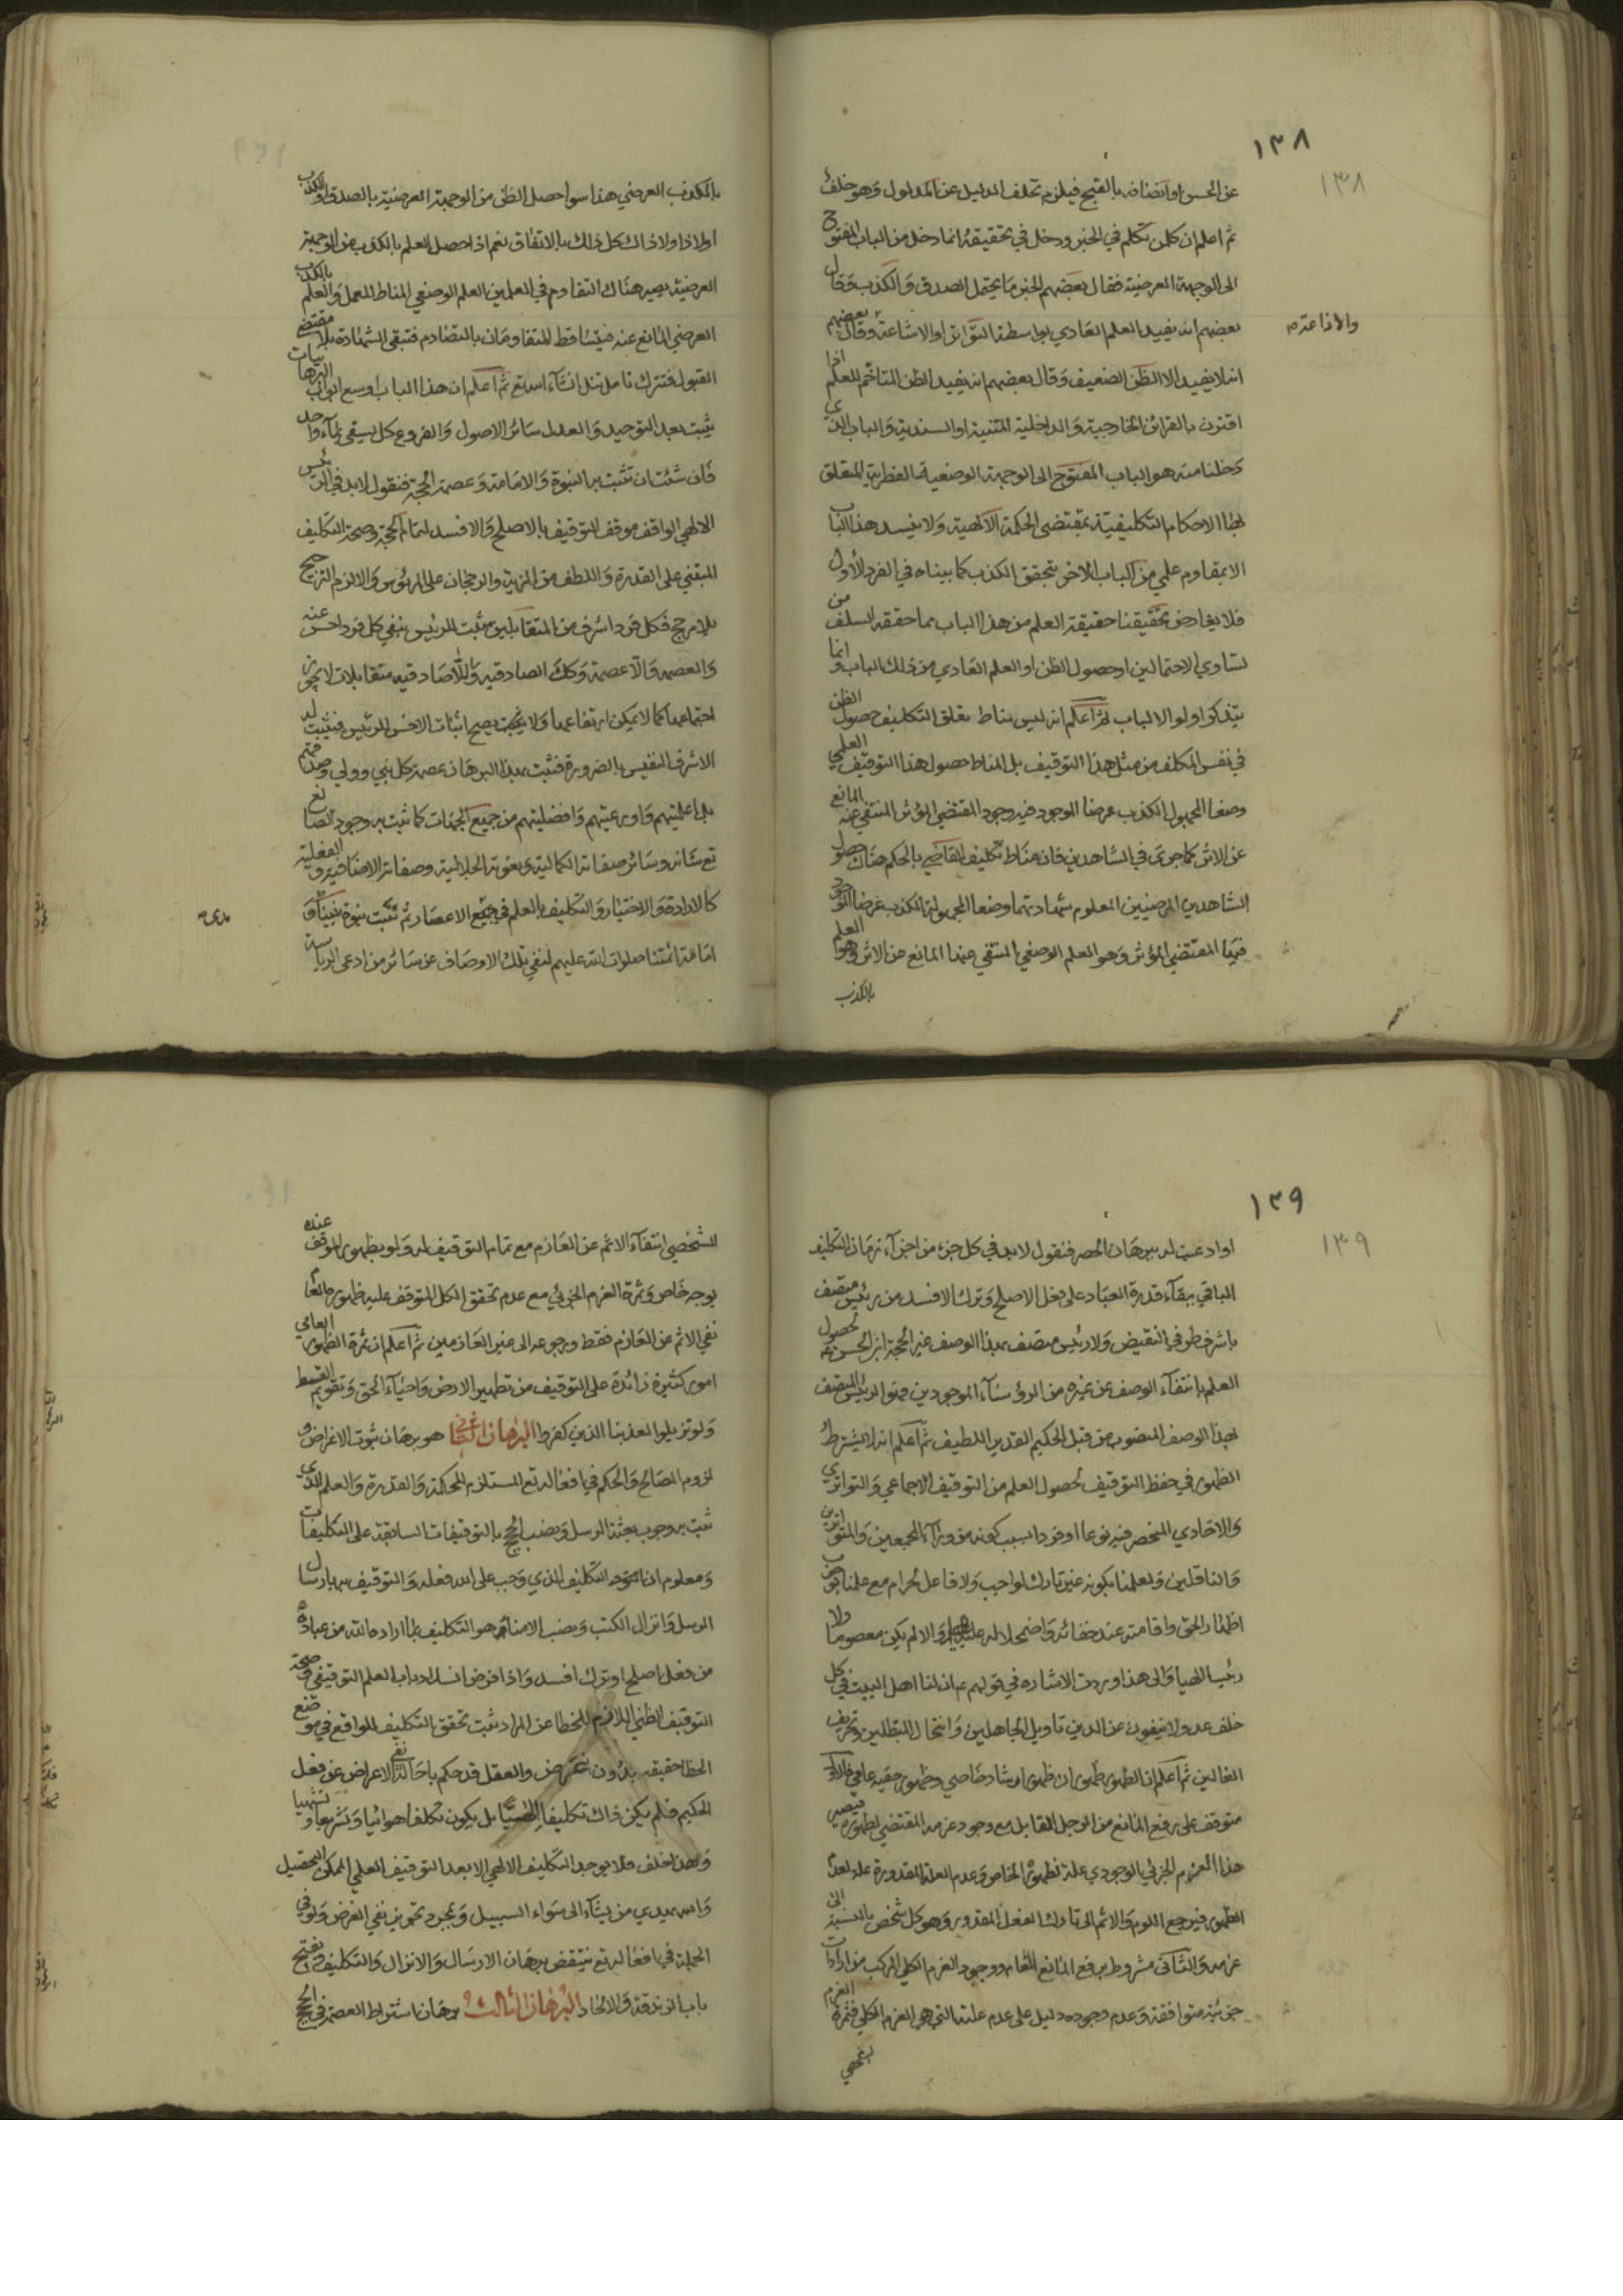 ١٣٨
١٣٨
عن الحسن او اتصافه بالقبح فيلزم تخلف الدليل عن المدلول وهو خلف
ثم اعلم ان كل من تكلم في الخبر ودخل في تحقيقه انما دخل من الباب المفتوح
الى الوجهة العرضية فقال بعضهم الخبر ما يحتمل الصدق والكذب وقال
بعضهم انه يفيد العلم العادي بواسطة التواتر او الاشاعة وقال بعضهم
والاذاعة
انه لا يفيد الا الظن الضعيف وقال بعضهم انه يفيد الظن المتاخم للعلم اذا
اقترن بالقرائن الخارجية والداخلية المتنية او السندية والباب الذي
دخلنا منه هو الباب المفتوح الى الوجهة الوضعية الفطرية المتعلق
بها الاحكام التكليفية بمقتضى الحكمة الالهية ولا ينسد هذا الباب
الا بمقاوم علمي من الباب الاخر بتحقق الكذب كما بيناه في الفرد الأول
فلا يعارض تحقيقنا حقيقة العلم من هذا الباب بما حققه السلف من
تساوي الاحتمالين او حصول الظن او العلم العادي من ذلك الباب وانما
يتذكر اولو الالباب ثم اعلم انه ليس مناط تعلق التكليف حصول الظن
في نفس المكلف من مثل هذا التوقيف بل المناط حصول هذا التوقيف العلمي
وضعا المجهول الكذب عرضا الموجود فيه وجود المقتضي المؤثر المنتفي عنه المانع
عن الاثر كما جرى في الشاهدين فان مناط تكليف القاضي بالحكم هناك حصول
الشاهدين المرضيين المعلوم شهادتهما وضعا المجهولة الكذب عرضا الموجود
فيها المقتضي المؤثر وهو العلم الوضعي المنتفي عنها المانع عن الاثر وهو العلم
بالكذب
بالكذب العرضي هذا سوا حصل الظن من الوجهة العرضية بالصدق او الكذب
اولا ذا ولا ذاك كل ذلك بالاتفاق نعم اذا حصل العلم بالكذب من الوجهة
العرضية يصير هناك التقاوم في العلمين العلم الوضعي المناط للعمل والعلم بالكذب
العرضي المانع عنه فيتساقط المتقاومان بالتصادم فتبقى الشهادة بلا مقتضى
القبول فتترك تامل تنل انشاء الله تع ثم اعلم ان هذا الباب اوسع ابواب البرهانيات
يثبت بعد التوحيد والعدل سائر الاصول والفروع كل يسقى بماء واحد
فان شئت ان تثبت به النبوة والامامة وعصمة الحجة فنقول لا بد في الرئيس
الالهي الواقف موقف التوقيف بالاصلح والافسد لتمام الحجة وصحة التكليف
المبتني على القدرة واللطف من المزية والرجحان على المرئوس والا لزم الترجيح
بلا مرجح فكل فرد اشرف من المتقابلين يثبت للرئيس بنفي كل فرد اخس عنه
والعصمة واللاعصمة وكك الصادقيه واللاصادقيه متقابلات لا يجوز
اجتماعها كما لا يمكن ارتفاعها ولا يصح اثبات الاخس للرئيس فيثبت له
الاشرف النفيس بالضرورة فثبت بهذا البرهان عصمة كل نبي وولي وصدقهم
بل اعلميتهم واورعيتهم وافضليتهم من جميع الجهات كما ثبت به وجود الصانع
تع شانه وسائر صفاته الكمالية ونعوته الجلالية وصفاته الاضافية والفعلية
كالارادة والاختيار والتكليف بالعلم في جميع الاعصار ثم تثبت نبوة نبينا ص و
امامة ائمتنا صلوات الله عليهم بنفي تلك الاوصاف عن سائر من ادعى الرياسة
١٣٩
١٣٩
او ادعيت له ببرهان الحصر فنقول لا بد في كل جزء من اجزاء زمان التكليف
الباقي ببقاء قدرة العباد على فعل الاصلح وترك الافسد من رئيس متصف
باشرف طرفي النقيض ولا رئيس متصف بهذا الوصف غير الحجة ابن الحسن لحصول
العلم بانتفاء الوصف عن غيره من الرؤساء الموجودين فهو الرئيس المتصف
بهذا الوصف المنصوب من قبل الحكيم القدير اللطيف ثم اعلم انه لا يشترط
الظهور في حفظ التوقيف لحصول العلم من التوقيف الاجماعي والتواتري
والاحادي المنحصر فيه نوعا او فردا بسبب كونه من وراء المجمعين والمتواترين
والناقلين وبعلمنا بكونه غير تارك لواجب ولا فاعل لحرام مع علمنا بوجوب
اظهار الحق واقامته عند خفائه واضمحلاله عليه والا لم يكن معصوما ولا
رئيسا الهيا والى هذا وردت الاشاره في قولهم ع ان لنا اهل البيت في كل
خلف عدولا ينفون عن الدين تاويل الجاهلين وانتحال المبطلين وتحريف
الغالين ثم اعلم ان الظهور ظهوران ظهور ارشاد خاصي وظهور حقيه عامي فالاول
متوقف على رفع المانع من الرجل القابل مع وجود عزمه المقتضي لظهوره فيصير
هذا العزم الجزئي الوجودي علة لظهوره الخاص وعدم العلة المقدورة علة لعدم
الظهور فيرجع اللوم والاثم الى تارك الفعل المقدور وهو كل شخص بالنسبة الى
عزمه والثاني مشروط برفع المانع العام ووجود العزم الكلي المركب من ارادات
جزئية متوافقة وعدم وجوده دليل على عدم علته التي هي العزم الكلي فثمرة العزم
الشخصي
الشخصي انتفاء الاثم عن العازم مع تمام التوقيف له ولو بظهور الموقف عنده
بوجه خاص وثمرة العزم الجزئي مع عدم تحقق الكل المتوقف عليه ظهوره عاما
نفي الاثم عن العازم فقط ورجوعه الى غير العازمين ثم اعلم ان ثمرة الظهور العامي
امور كثيرة زائدة على التوقيف من تطهير الارض واحياء الحق وتقويم القسط
ولو تزيلوا لعذبنا الذين كفروا البرهان الثاني هو برهان ثبوت الاغراض و
لزوم المصالح والحكم في افعاله تع المستلزم للحكمة والقدرة والعلم الذي
ثبت به وجوب بعثة الرسل ونصب الحجج بالتوقيفات السابقة على التكليفات
ومعلوم ان التكليف الذي وجب على الله فعله والتوقيف به بارسال
الرسل وانزال الكتب ونصب الامناء هو التكليف بما اراده الله من عباده
من فعل اصلح او ترك افسد واذا فرض انسداد باب العلم التوقيفي وصحة
التوقيف الظني اللازم للخطا عن المراد ثبت تحقق التكليف الواقع في موضع
الخطا حقيقه بدون غرض والعقل قد حكم باحالة نفي الاعراض عن فعل
الحكيم فلم يكن ذاك تكليفا الهيا بل يكون تكلفا هوائيا وتشريعا وتشهيا
وهذا خلف فلا يوجد التكليف الالهي الا بعد التوقيف العلمي الممكن التحصيل
والله يهدي من يشاء الى سواء السبيل وبمجرد تجويز نفي الغرض ولو في
الجملة في افعاله تع ينتقض برهان الارسال والانزال والتكليف ويفتح
باب الزندقة والالحاد البرهان الثالث برهان اشتراط العصمة في الحجج